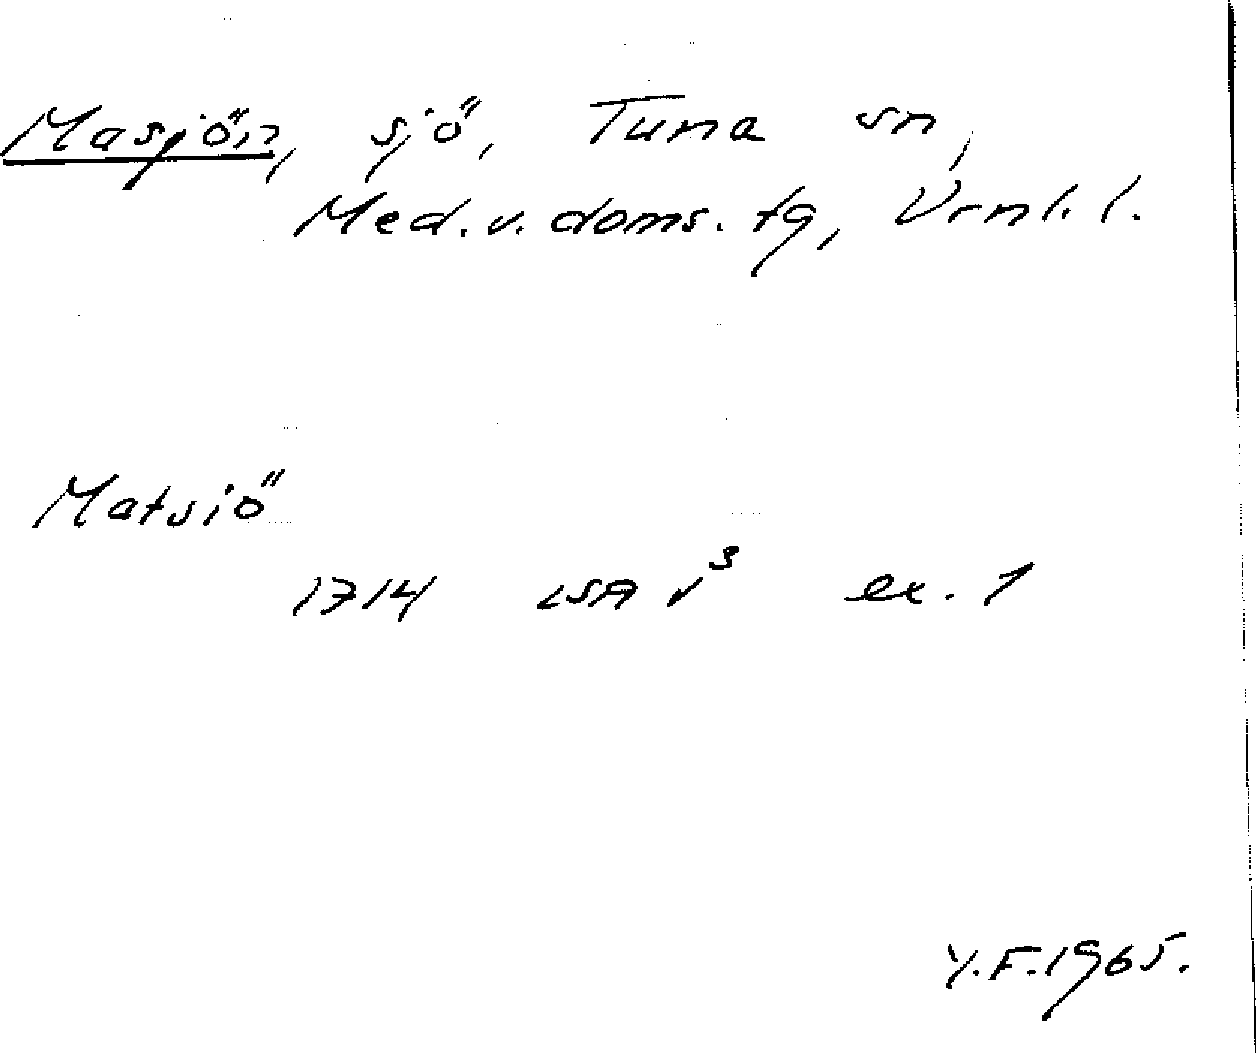 Masjön, sjö, Tuna sn,
Med. v. doms. tg, Vrnl. l.
Matsiö
1714 LSA v³ ex. 1
Y.F. 1965.